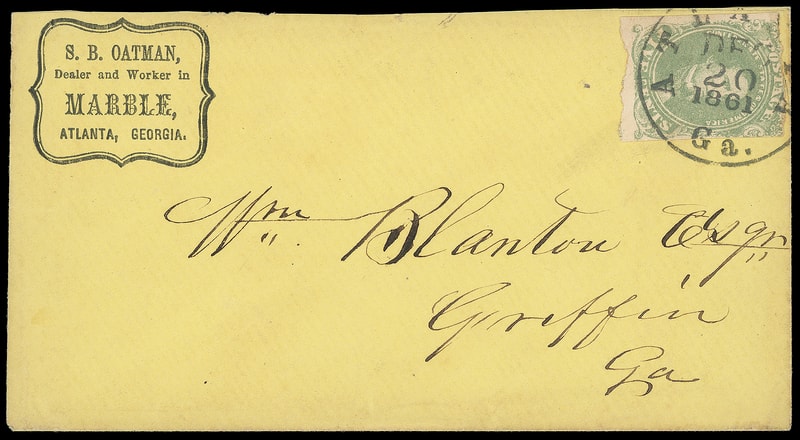 S. B. OATMAN,
Dealer and Worker in
MARBLE, &c.
ATLANTA, GEORGIA.
ATLANTA
DEC
20
1861
Ga.
Wm. Blanton Esqr
Griffin
Ga